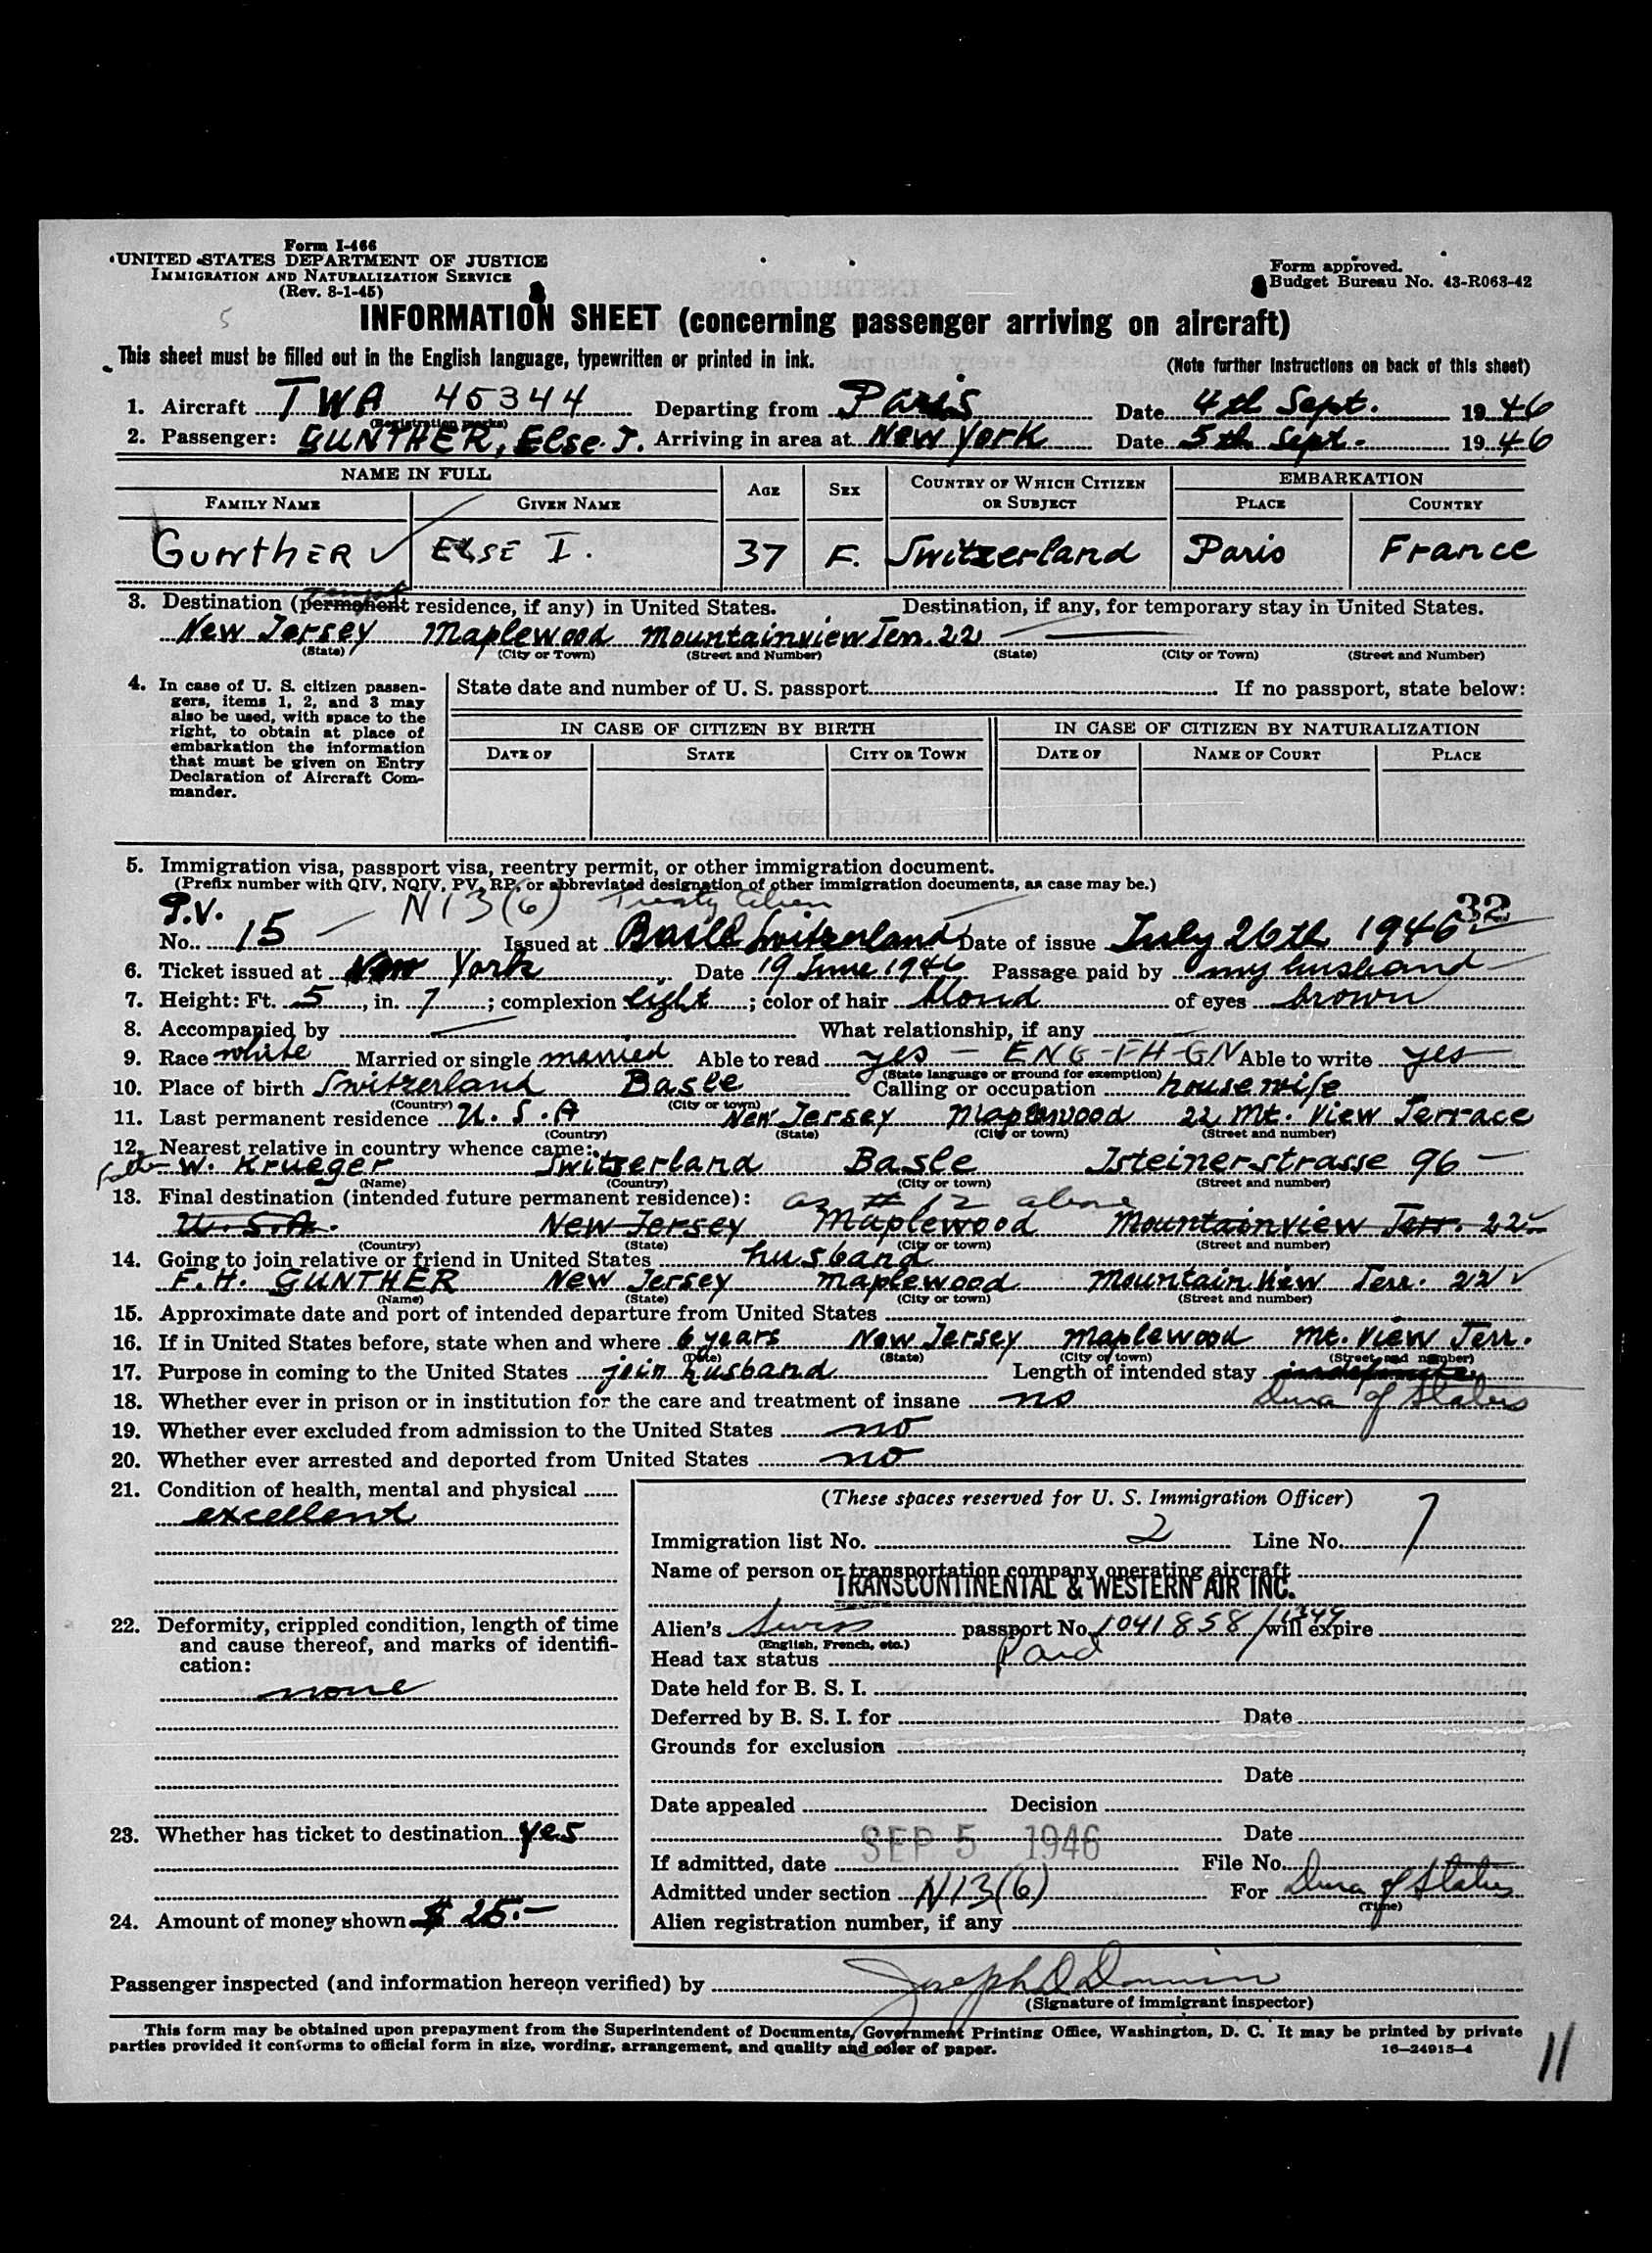 Form I-466
UNITED STATES DEPARTMENT OF JUSTICE
IMMIGRATION AND NATURALIZATION SERVICE
(Rev. 8-1-45)
Form approved.
Budget Bureau No. 43-R063-42
5
INFORMATION SHEET (concerning passenger arriving on aircraft)
This sheet must be filled out in the English language, typewritten or printed in ink. (Note further instructions on back of this sheet)
1. Aircraft TWA 45344 Departing from Paris Date 4th Sept. 1946
(Registration marks)
2. Passenger: GUNTHER, Else I. Arriving in area at New York Date 5th Sept. 1946
NAME IN FULL AGE SEX COUNTRY OF WHICH CITIZEN OR SUBJECT EMBARKATION
FAMILY NAME GIVEN NAME PLACE COUNTRY
GUNTHER ELSE I. 37 F. Switzerland Paris France
3. Destination (permanent residence, if any) in United States. Destination, if any, for temporary stay in United States.
New Jersey Maplewood Mountainview Terr. 22
(State) (City or Town) (Street and Number) (State) (City or Town) (Street and Number)
4. In case of U. S. citizen passengers, items 1, 2, and 3 may also be used, with space to the right, to obtain at place of embarkation the information that must be given on Entry Declaration of Aircraft Commander.
State date and number of U. S. passport If no passport, state below:
IN CASE OF CITIZEN BY BIRTH IN CASE OF CITIZEN BY NATURALIZATION
DATE OF STATE CITY OR TOWN DATE OF NAME OF COURT PLACE
5. Immigration visa, passport visa, reentry permit, or other immigration document.
(Prefix number with QIV, NQIV, PV, RP, or abbreviated designation of other immigration documents, as case may be.)
P.V. N13(6) Treaty Alien 32
No. 15 Issued at Basle Switzerland Date of issue July 26th 1946
6. Ticket issued at New York Date 19 June 1946 Passage paid by my husband
7. Height: Ft. 5, in. 7; complexion light; color of hair blond of eyes brown
8. Accompanied by What relationship, if any
9. Race white Married or single married Able to read yes - ENG-FH-GN Able to write yes
(State language or ground for exemption)
10. Place of birth Switzerland Basle Calling or occupation housewife
(Country) (City or town)
11. Last permanent residence U.S.A New Jersey Maplewood 22 Mt. View Terrace
(Country) (State) (City or town) (Street and number)
12. Nearest relative in country whence came:
father W. Krueger Switzerland Basle Isteinerstrasse 96
(Name) (Country) (City or town) (Street and number)
13. Final destination (intended future permanent residence): as # 12 above
U.S.A. New Jersey Maplewood Mountainview Terr. 22
(Country) (State) (City or town) (Street and number)
14. Going to join relative or friend in United States husband
F.H. GUNTHER New Jersey Maplewood Mountain View Terr. 22
(Name) (State) (City or town) (Street and number)
15. Approximate date and port of intended departure from United States
16. If in United States before, state when and where 6 years New Jersey Maplewood Mt. View Terr.
(Date) (State) (City or town) (Street and number)
17. Purpose in coming to the United States join husband Length of intended stay indefinite
18. Whether ever in prison or in institution for the care and treatment of insane no Dura of Status
19. Whether ever excluded from admission to the United States no
20. Whether ever arrested and deported from United States no
21. Condition of health, mental and physical
excellent
22. Deformity, crippled condition, length of time and cause thereof, and marks of identification:
none
23. Whether has ticket to destination yes
24. Amount of money shown $ 25.-
(These spaces reserved for U. S. Immigration Officer)
Immigration list No. 2 Line No. 7
Name of person or transportation company operating aircraft
TRANSCONTINENTAL & WESTERN AIR INC.
Alien's Swiss passport No. 1041858 will expire
(English, French, etc.)
Head tax status Paid
Date held for B. S. I.
Deferred by B. S. I. for Date
Grounds for exclusion
Date
Date appealed Decision
Date
SEP 5 1946
If admitted, date File No.
Admitted under section N13(6) For Dura of Status
(Time)
Alien registration number, if any
Passenger inspected (and information hereon verified) by
(Signature of immigrant inspector)
This form may be obtained upon prepayment from the Superintendent of Documents, Government Printing Office, Washington, D. C. It may be printed by private
parties provided it conforms to official form in size, wording, arrangement, and quality and color of paper. 16—24915-4
11